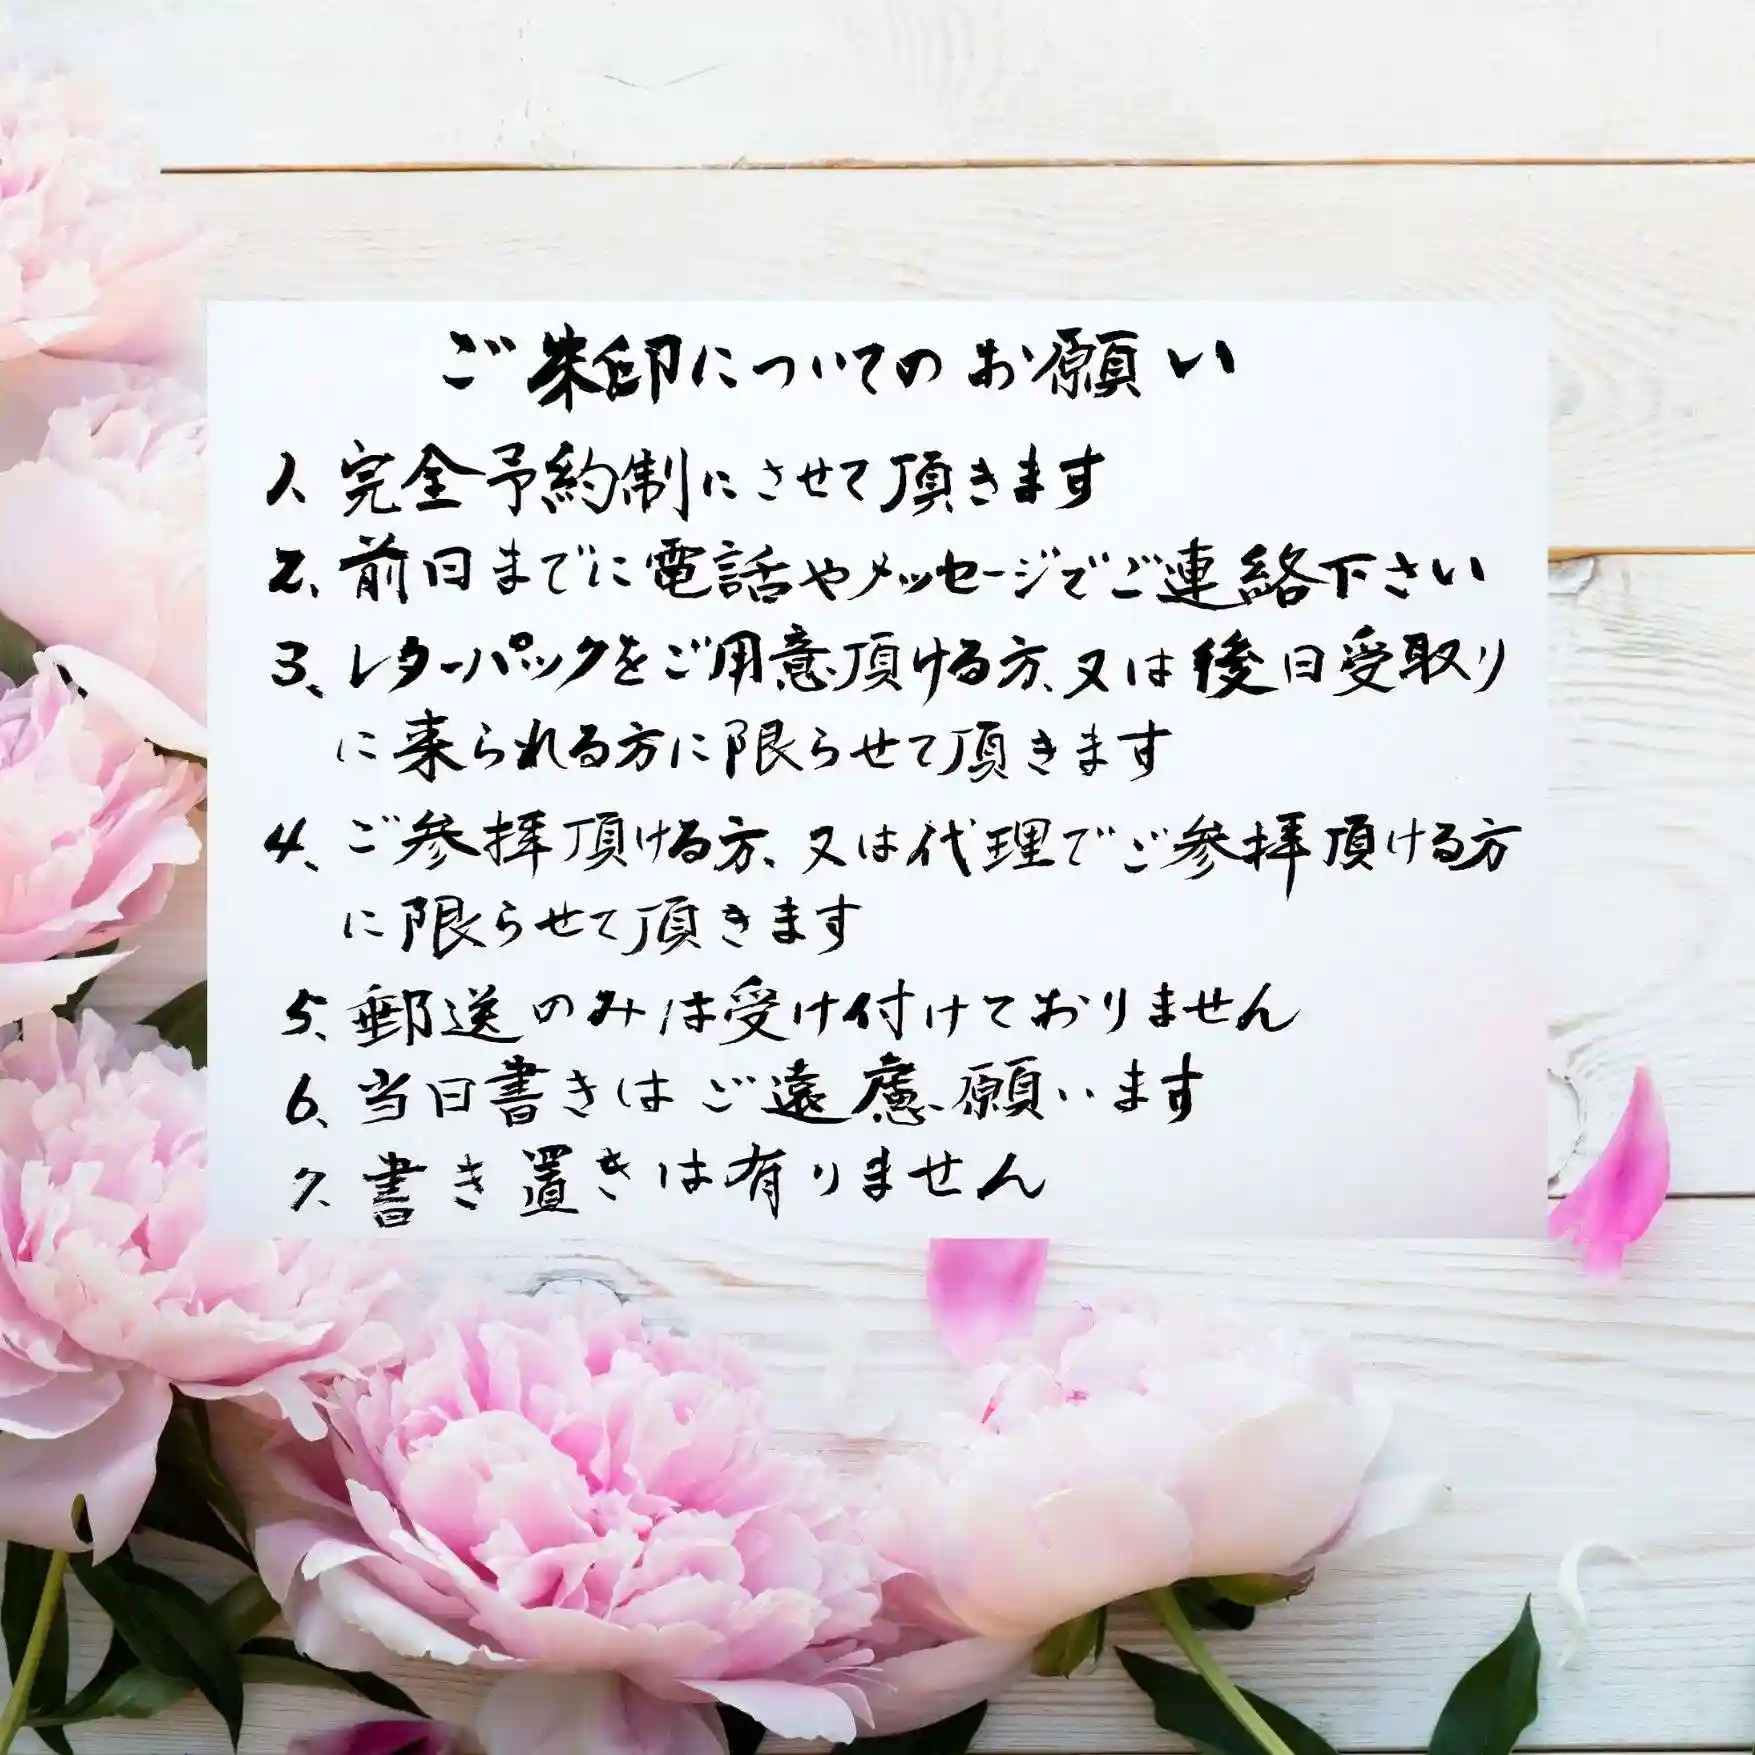 ご朱印についてのお願い
1、完全予約制にさせて頂きます
2、前日までに電話やメッセージでご連絡下さい
3、レターパックをご用意頂ける方、又は後日受取り
に来られる方に限らせて頂きます
4、ご参拝頂ける方、又は代理でご参拝頂ける方
に限らせて頂きます
5、郵送のみは受け付けておりません
6、当日書きはご遠慮願います
7、書き置きは有りません